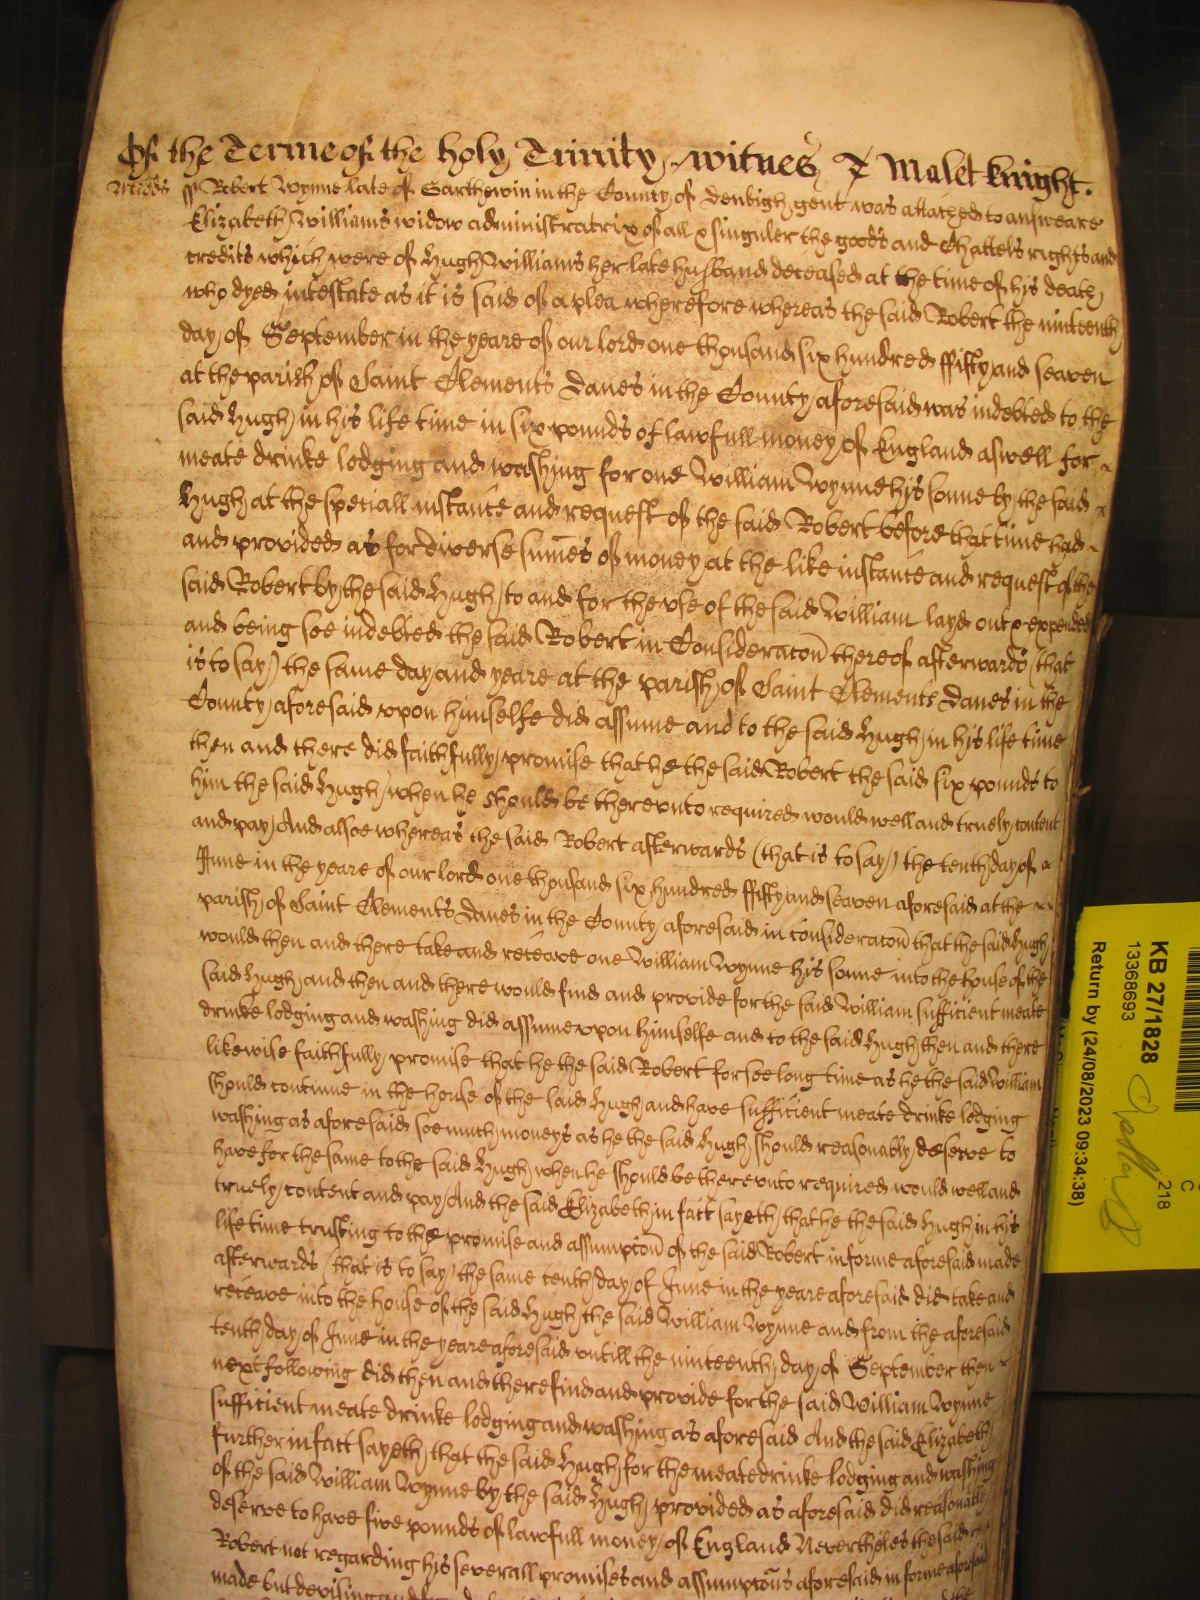 Of the Terme of the holy Trinity witnes T Malet knight.
Midds ss Robert Wynne late of Garthewin in the County of Denbigh gent was attached to answeare
Elizabeth Williams widow administratrix of all & singuler the goods and Chattels rights and
credits which were of Hugh Williams her late husband deceased at the time of his death
who dyed intestate as it is said of a plea wherefore whereas the said Robert the ninteenth
day of September in the yeare of our lord one thousand six hundred ffifty and seaven
at the parish of Saint Clements Danes in the County aforesaid was indebted to the
said Hugh in his life time in six pounds of lawfull money of England aswell for
meate drinke lodging and washing for one William Wynne his sonne by the said
Hugh at the speciall instance and request of the said Robert before that time had
and provided as for diverse sumes of money at the like instance and request of the
said Robert by the said Hugh to and for the use of the said William layd out & expended
and being soe indebted the said Robert in Consideracon thereof afterwards (that
is to say) the same day and yeare at the parish of Saint Clements Danes in the
County aforesaid upon himselfe did assume and to the said Hugh in his life time
then and there did faithfully promise that he the said Robert the said six pounds to
him the said Hugh when he should be thereunto required would well and truely content
and pay And alsoe whereas the said Robert afterwards (that is to say) the tenth day of
June in the yeare of our lord one thousand six hundred ffifty and seaven aforesaid at the
parish of Saint Clements Danes in the County aforesaid in consideracon that the said Hugh
would then and there take and receave one William Wynne his sonne into the house of the
said Hugh and then and there would find and provide for the said William sufficient meate
drinke lodging and washing did assume upon himselfe and to the said Hugh then and there
likewise faithfully promise that he the said Robert for soe long time as he the said William
should continue in the house of the said Hugh and have sufficient meate drinke lodging
washing as aforesaid soe much moneys as he the said Hugh should reasonably deserve to
have for the same to the said Hugh when he should be thereunto required would well and
truely content and pay And the said Elizabeth in fact sayeth that he the said Hugh in his
life time trusting to the promise and assumpcon of the said Robert in forme aforesaid made
afterwards (that is to say) the same tenth day of June in the yeare aforesaid did take and
receave into the house of the said Hugh the said William Wynne and from the aforesaid
tenth day of June in the yeare aforesaid untill the ninteenth day of September then
next following did then and there find and provide for the said William Wynne
sufficient meate drinke lodging and washing as aforesaid And the said Elizabeth
further in fact sayeth that the said Hugh for the meate drinke lodging and washing
of the said William Wynne by the said Hugh provided as aforesaid did reasonably
deserve to have five pounds of lawfull money of England Nevertheles the said
Robert not regarding his severall promises and assumpcons aforesaid in forme aforesaid
made but devising and
KB 27/1828
13368693
Return by (24/08/2023 09:34:38)
C
218